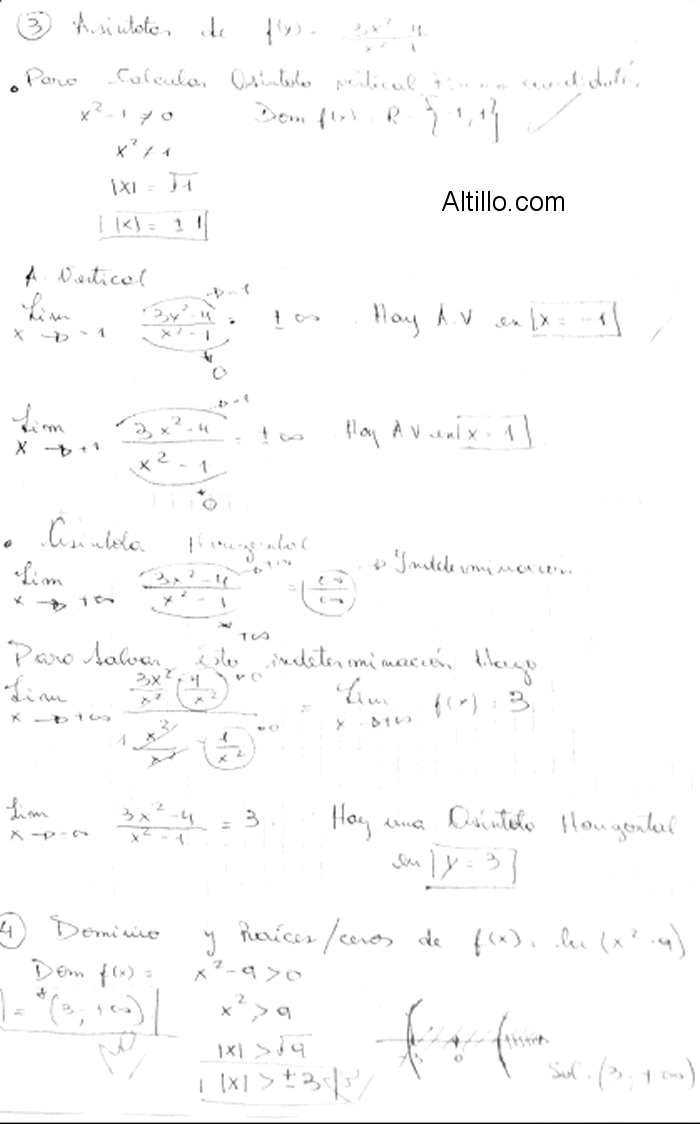 ③ Asíntotas de f(x) = 3x²-4 / x²-1
• Para Calcular Asíntota vertical
x²-1 ≠ 0 Dom f(x) = R - {-1, 1}
x² ≠ 1
|x| = √1
|x| = ± 1
Altillo.com
A. Vertical
→ -1
Lim x→-1 3x²-4 / x²-1 = ± ∞ Hay A.V en x = -1
0
→ -1
Lim x→+1 3x²-4 / x²-1 = ± ∞ Hay AV en x = 1
0
• Asíntota Horizontal
→ +∞
Lim x→+∞ 3x²-4 / x²-1 = ∞/∞ → Indeterminación
+∞
Para salvar esta indeterminación Hago
Lim x→+∞ 3x²/x² - 4/x² →0 / x²/x² - 1/x² →0 = Lim x→+∞ f(x) = 3
Lim x→-∞ 3x²-4 / x²-1 = 3 Hay una Asíntota Horizontal
en y = 3
④ Dominio y Raíces/ceros de f(x) = ln (x²-9)
Dom f(x) = x²-9 > 0
= (3; +∞) x² > 9
|x| > √9
|x| > ±3 Sol = (3; +∞)